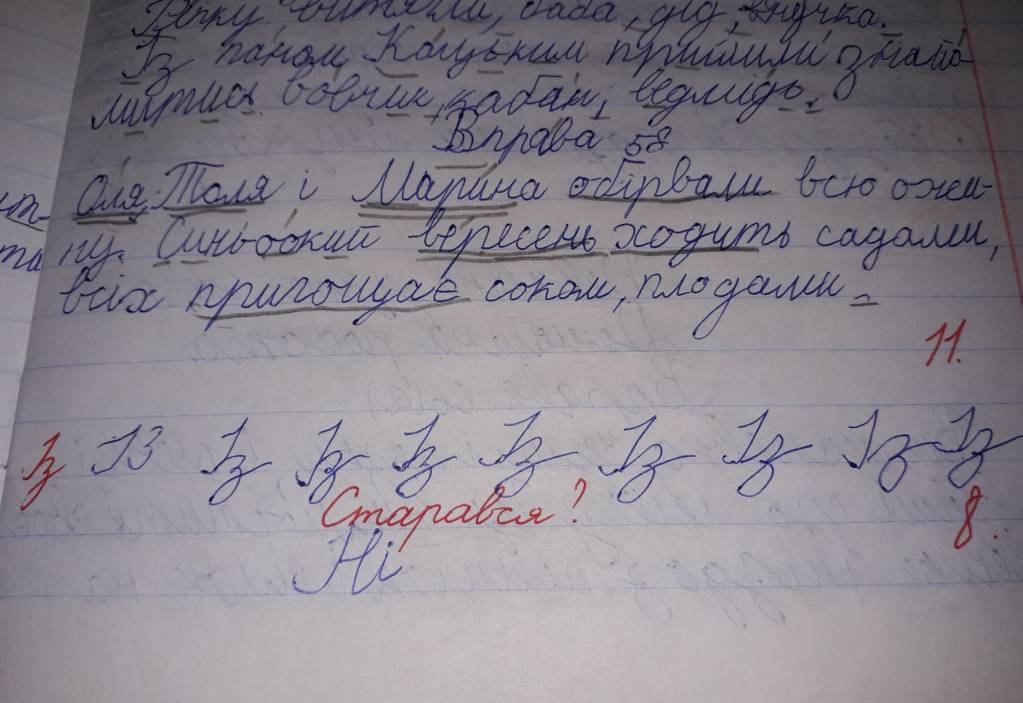 Річку витягли, баба, дід, внучка.
Із паном Коцьким прийшли знайо-
митись вовчик, кабан, ведмідь.
Вправа 58
Оля, Толя і Марина обірвали всю ожи-
ну. Синьоокий вересень ходить садами,
всіх пригощає соком, плодами.
11.
Із ІЗ Із Із Із Із Із Із Із Із
Старався? 8.
Ні